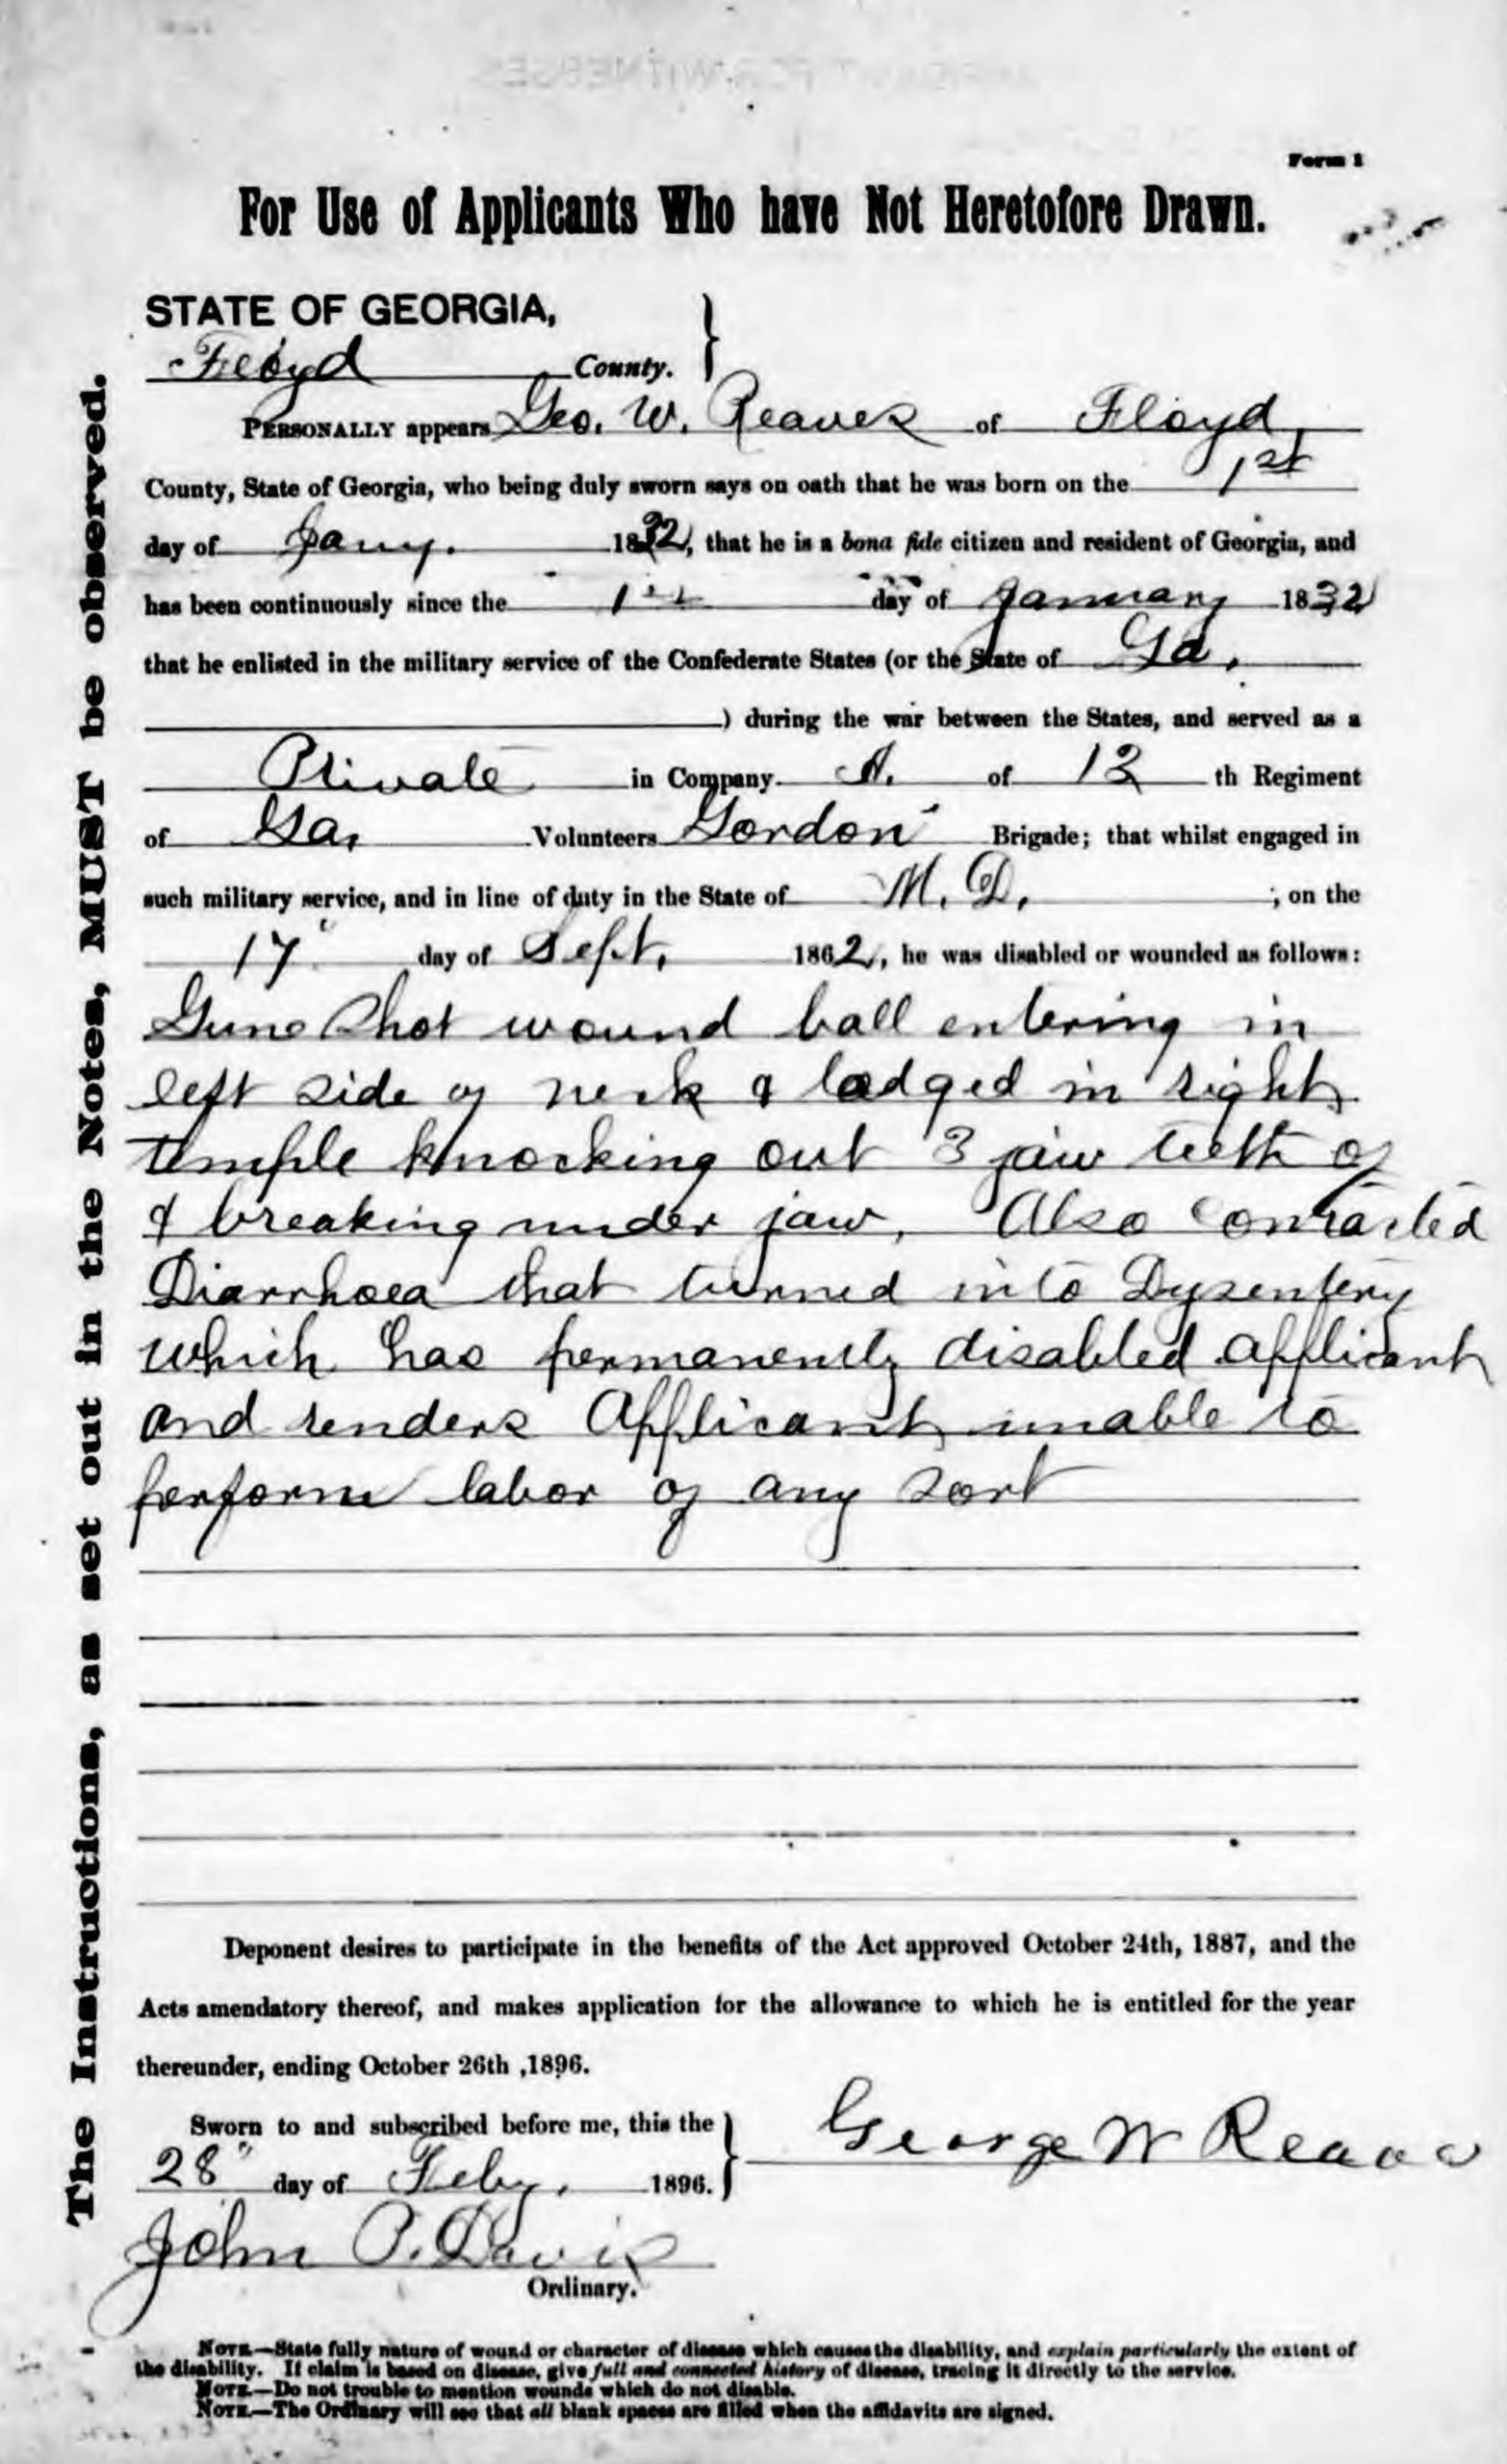 Form 1
For Use of Applicants Who have Not Heretofore Drawn.
STATE OF GEORGIA,
Floyd County. }
PERSONALLY appears Geo. W. Reaves of Floyd,
County, State of Georgia, who being duly sworn says on oath that he was born on the 1st
day of Jany. 1832, that he is a bona fide citizen and resident of Georgia, and
has been continuously since the 1st day of January 1832
that he enlisted in the military service of the Confederate States (or the State of Ga.
) during the war between the States, and served as a
Private in Company A. of 13 th Regiment
of Ga, Volunteers Gordon Brigade; that whilst engaged in
such military service, and in line of duty in the State of M. D. ; on the
17" day of Sept, 1862, he was disabled or wounded as follows:
Gune Shot wound ball entering in
left side of neck & lodged in right
temple knocking out 3 jaw teeth of
& breaking under jaw, Also Contracted
Diarrhoea that turned into Dysentery
which has permanently disabled applicant
and renders Applicant unable to
perform labor of any sort
Deponent desires to participate in the benefits of the Act approved October 24th, 1887, and the
Acts amendatory thereof, and makes application for the allowance to which he is entitled for the year
thereunder, ending October 26th ,1896.
Sworn to and subscribed before me, this the }
28" day of Feby. 1896.
George W Reaves
John P. Davis
Ordinary.
NOTE.—State fully nature of wound or character of disease which causes the disability, and explain particularly the extent of
the disability. If claim is based on disease, give full and connected history of disease, tracing it directly to the service.
NOTE.—Do not trouble to mention wounds which do not disable.
NOTE.—The Ordinary will see that all blank spaces are filled when the affidavits are signed.
The Instructions, as set out in the Notes, MUST be observed.